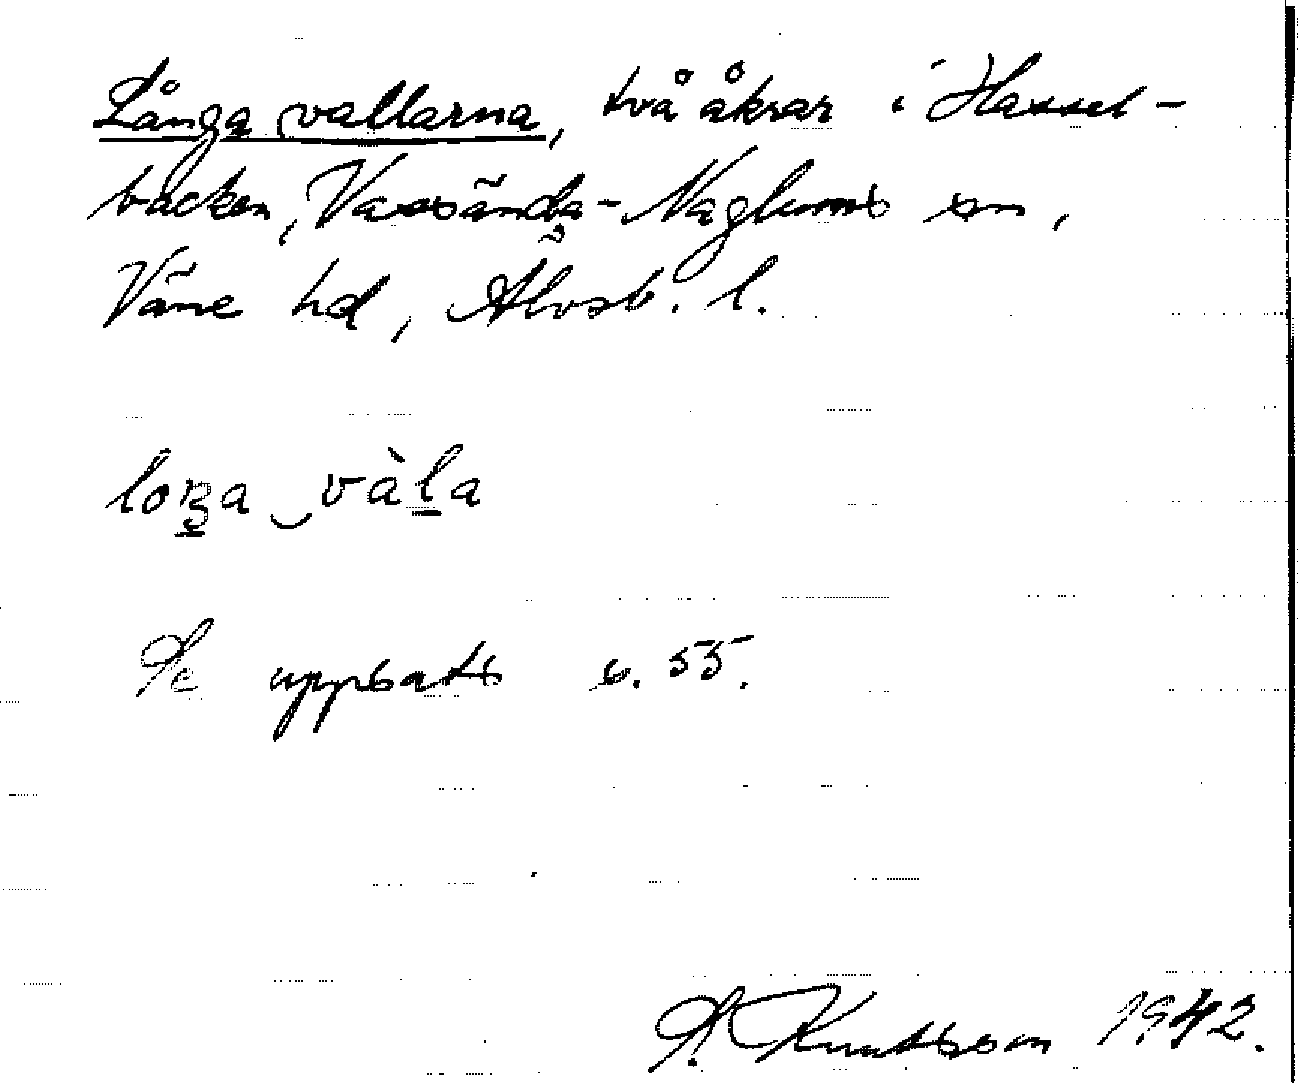 Långa vallarna, två åkrar i Hassel-
backen, Vassända-Naglums sn,
Väne hd, Älvsb. l.
loŋa‿vàla
Se uppsats s. 55.
A. Knutsson 1942.